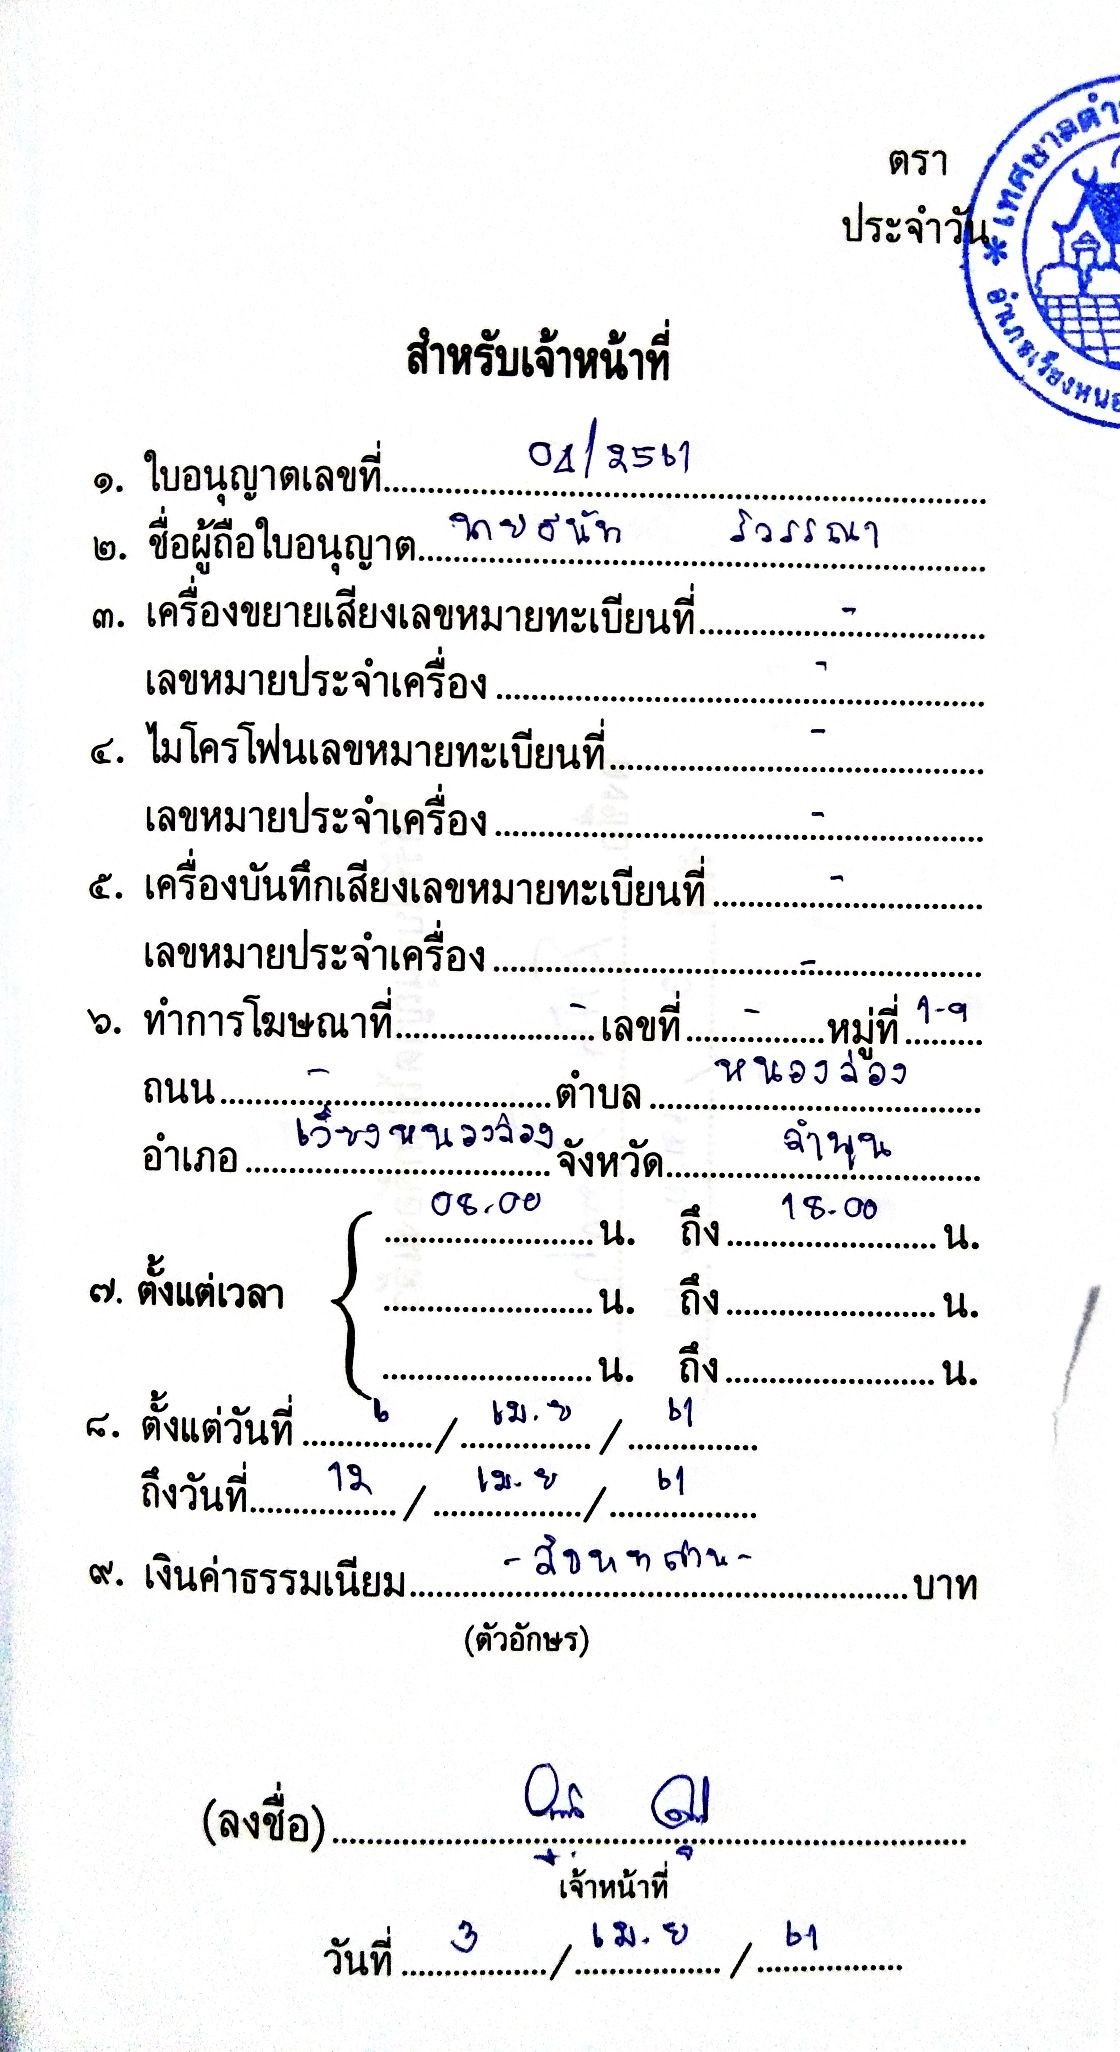 ตรา
ประจำวัน
* เทศบาลตำ
อำเภอเวียงหนอ
สำหรับเจ้าหน้าที่
๑. ใบอนุญาตเลขที่ 04/2561
๒. ชื่อผู้ถือใบอนุญาต นายธนัท ริวรรณา
๓. เครื่องขยายเสียงเลขหมายทะเบียนที่ -
เลขหมายประจำเครื่อง -
๔. ไมโครโฟนเลขหมายทะเบียนที่ -
เลขหมายประจำเครื่อง -
๕. เครื่องบันทึกเสียงเลขหมายทะเบียนที่ -
เลขหมายประจำเครื่อง -
๖. ทำการโฆษณาที่ - เลขที่ - หมู่ที่ 1-9
ถนน - ตำบล หนองล่อง
อำเภอ เวียงหนองล่อง จังหวัด ลำพูน
08.00 น. ถึง 18.00 น.
๗. ตั้งแต่เวลา น. ถึง น.
น. ถึง น.
๘. ตั้งแต่วันที่ 6 / เม.ย / 61
ถึงวันที่ 12 / เม.ย / 61
๙. เงินค่าธรรมเนียม - บาท
(ตัวอักษร)
(ลงชื่อ)
เจ้าหน้าที่
วันที่ 3 / เม.ย / 61